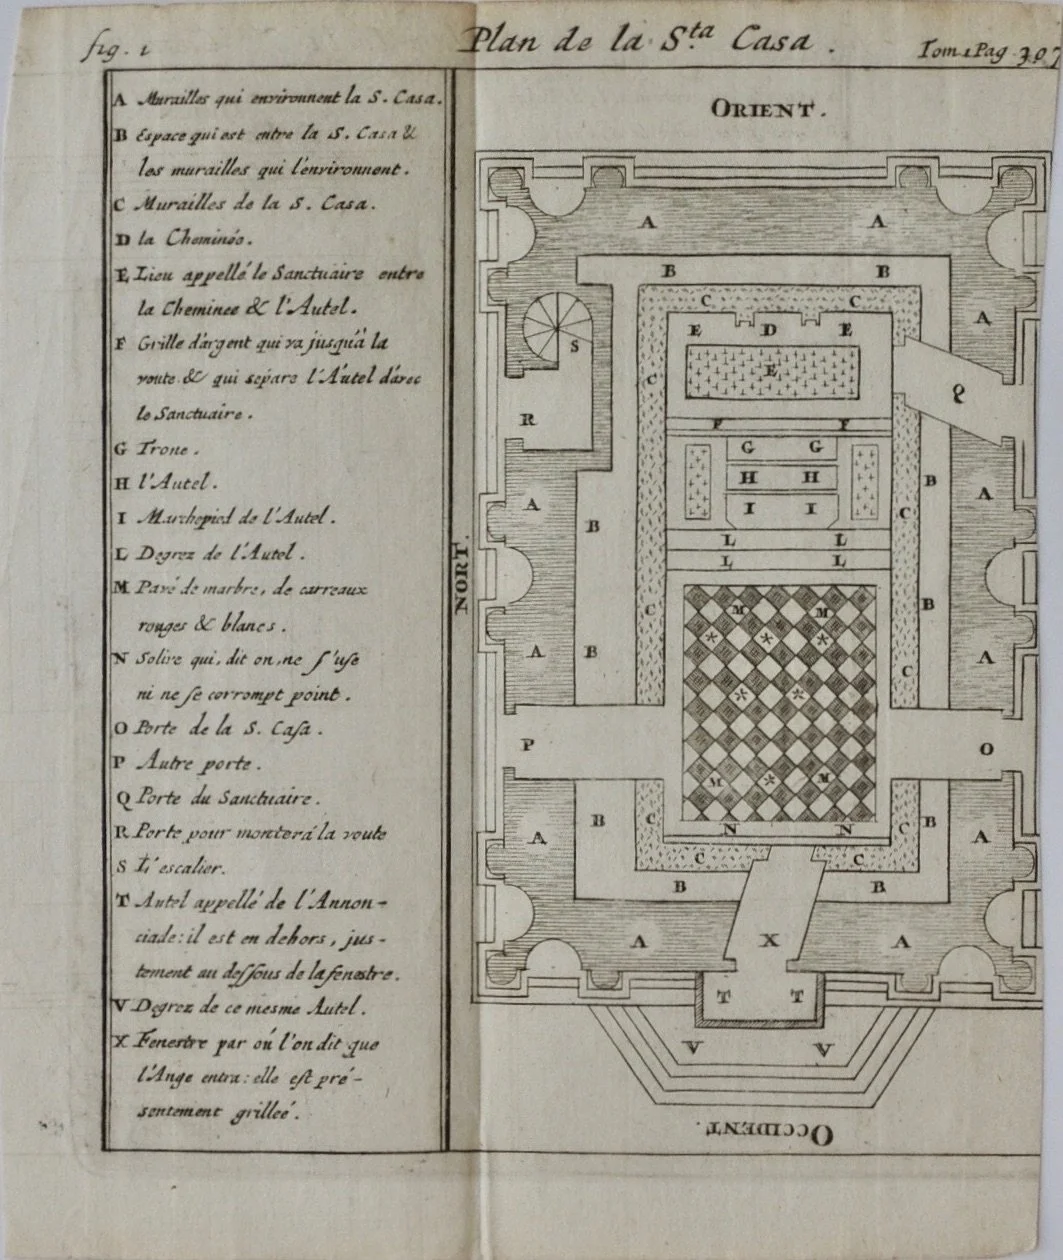 fig. 1
Plan de la S.ta Casa.
Tom.1 Pag. 307
A Murailles qui environnent la S. Casa.
B Espace qui est entre la S. Casa &
les murailles qui l'environnent.
C Murailles de la S. Casa.
D la Cheminée.
E Lieu appellé le Sanctuaire entre
la Cheminee & l'Autel.
F Grille d'argent qui va jusqu'à la
voute & qui separe l'Autel d'avec
le Sanctuaire.
G Trone.
H l'Autel.
I Marchepied de l'Autel.
L Degrez de l'Autel.
M Pavé de marbre, de carreaux
rouges & blancs.
N Solive qui, dit on, ne s'use
ni ne se corrompt point.
O Porte de la S. Casa.
P Autre porte.
Q Porte du Sanctuaire.
R Porte pour monter à la voute
S L'escalier.
T Autel appellé de l'Annon-
ciade: il est en dehors, jus-
tement au dessous de la fenestre.
V Degrez de ce mesme Autel.
X Fenestre par où l'on dit que
l'Ange entra: elle est pré-
sentement grilleé.
NORT.
ORIENT.
A A
B B
C C
A
E D E
S
E
C
Q
R
F F
G G
H H
B
A
A
C
I I
B
L L
L L
C
M M
B
A
B
C
A
P
O
M M
A
B
C
N N
C
B
A
C C
B B
A
X
A
T T
V V
OCCIDENT.